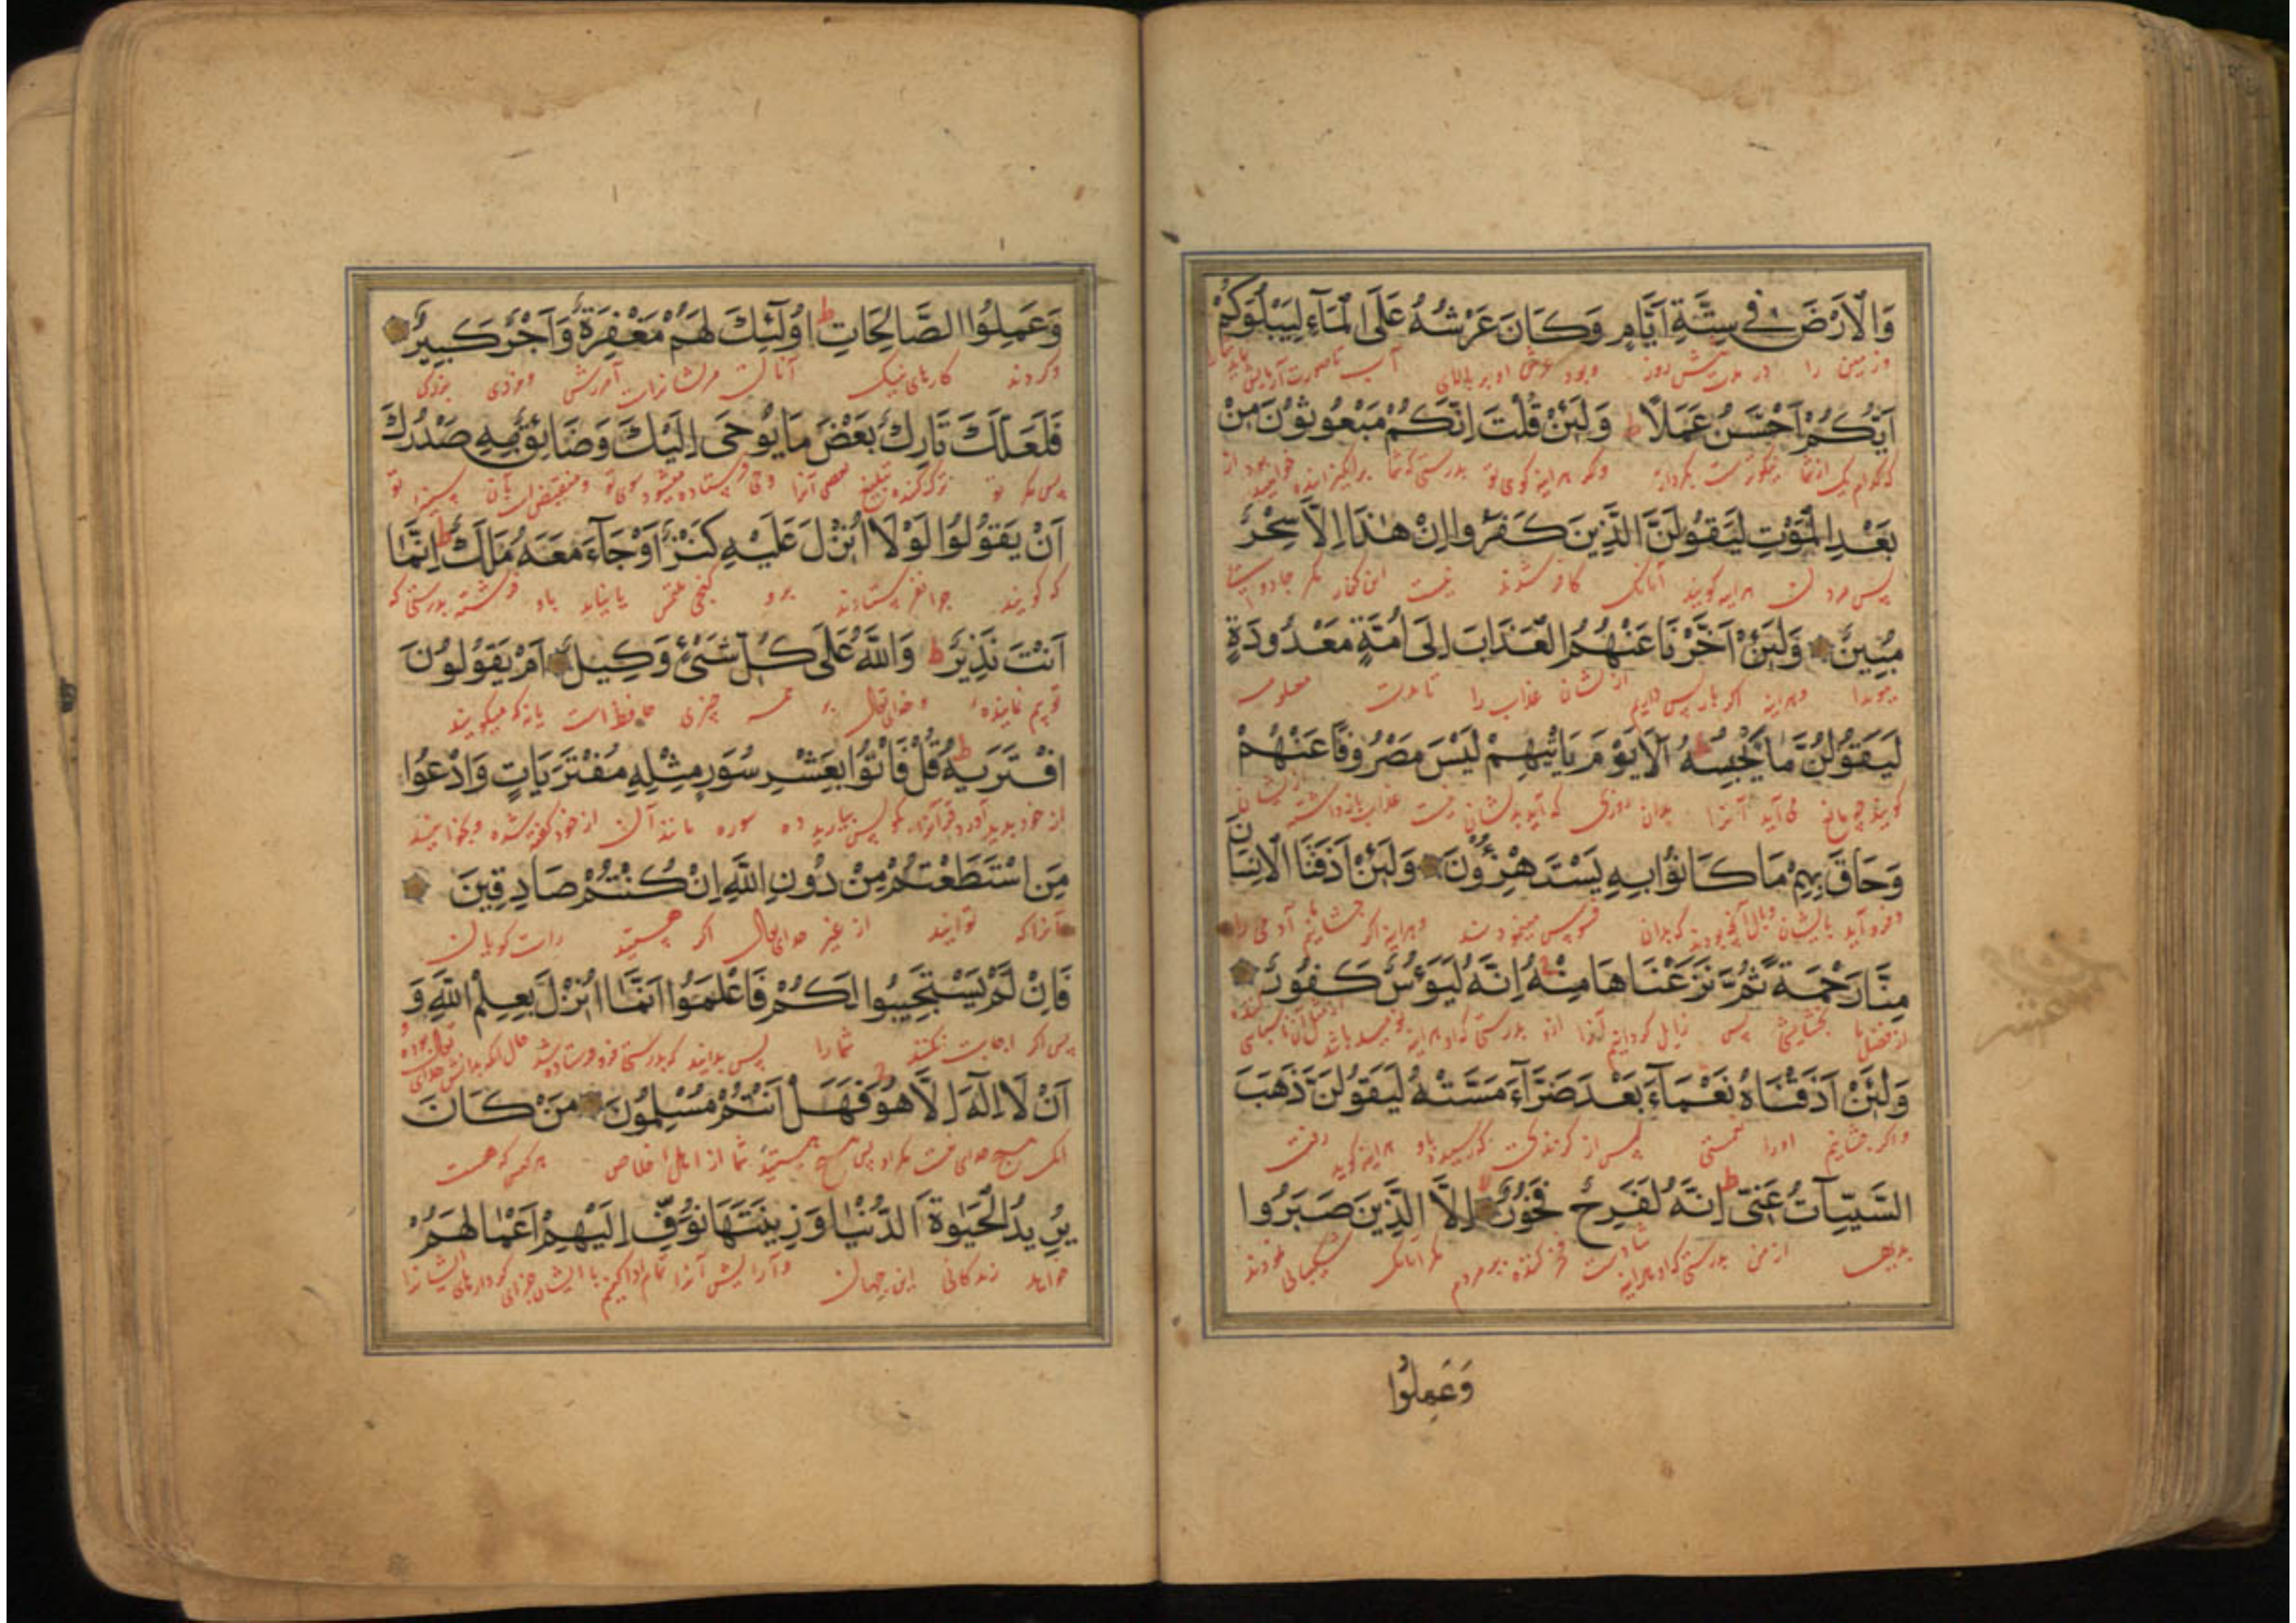 وَالْاَرْضَ فِي سِتَّةِ اَيَّامٍ وَكَانَ عَرْشُهُ عَلَى الْمَآءِ لِيَبْلُوَكُمْ
وزمین را در مدت شش روز وبود عرش او بر بالای آب تا صورت آزمایش
اَيُّكُمْ اَحْسَنُ عَمَلًا ط وَلَئِنْ قُلْتَ اِنَّكُمْ مَبْعُوثُونَ مِنْ
که کدام یک از شما نیکوترست بکردار وگر هراینه کوی تو بدرستی که شما برانگیزانیده خواهید بود از
بَعْدِ الْمَوْتِ لَيَقُولَنَّ الَّذِينَ كَفَرُوا اِنْ هٰذَا اِلَّا سِحْرٌ
پس مردن هراینه کویند آنانک کافر شدند نیست این مکر جادویست
مُبِينٌ وَلَئِنْ اَخَّرْنَا عَنْهُمُ الْعَذَابَ اِلَى اُمَّةٍ مَعْدُودَةٍ
هویدا وهراینه اکر باز پس داریم ازیشان عذاب را تا مدت معلوم
لَيَقُولُنَّ مَا يَحْبِسُهُ ط اَلَا يَوْمَ يَاْتِيهِمْ لَيْسَ مَصْرُوفًا عَنْهُمْ
کویند چه مانع می آید آنرا بدان روزی که آید بدیشان نیست عذاب باز داشته
وَحَاقَ بِهِمْ مَا كَانُوا بِهِ يَسْتَهْزِؤُنَ وَلَئِنْ اَذَقْنَا الْاِنْسَانَ
وفرو آید بایشان وبال آنچه بودند که بدان فسوس مینمودند وهراینه اکر چشانیم آدمی را
مِنَّا رَحْمَةً ثُمَّ نَزَعْنَاهَا مِنْهُ اِنَّهُ لَيَؤُسٌ كَفُورٌ
از فضل ما بخشایشی پس زایل کردانیم آنرا ازو بدرستی که او هراینه نومید باشد
وَلَئِنْ اَذَقْنَاهُ نَعْمَآءَ بَعْدَ ضَرَّآءَ مَسَّتْهُ لَيَقُولَنَّ ذَهَبَ
واکر چشانیم اورا نعمتی پس از کزندی که رسید باو هراینه کوید رفت
السَّيِّاٰتُ عَنِّي ط اِنَّهُ لَفَرِحٌ فَخُورٌ اِلَّا الَّذِينَ صَبَرُوا
بدیها از من بدرستی که او هراینه شادست فخر کننده بر مردم مکر آنانک شکیبائی نمودند
وَعَمِلُوا
وَعَمِلُوا الصَّالِحَاتِ ط اُولٰٓئِكَ لَهُمْ مَغْفِرَةٌ وَاَجْرٌ كَبِيرٌ
وکردند کارهای نیک آنانست مر ایشانراست آمرزش ومزدی بزرک
فَلَعَلَّكَ تَارِكٌ بَعْضَ مَا يُوحَى اِلَيْكَ وَضَائِقٌ بِهِ صَدْرُكَ
پس مکر تو ترک کننده تبلیغ بعضی آنرا وحی فرستاده میشود سوی تو ومنقبض است بآن سینه تو
اَنْ يَقُولُوا لَوْلَا اُنْزِلَ عَلَيْهِ كَنْزٌ اَوْ جَآءَ مَعَهُ مَلَكٌ ط اِنَّمَا
که کویند چرا نفرستادند برو کنجی یا نیامد باو فرشته بدرستی که
اَنْتَ نَذِيرٌ ط وَاللَّهُ عَلَى كُلِّ شَيْءٍ وَكِيلٌ اَمْ يَقُولُونَ
تو بیم نماینده وخدای تعالی بر همه چیزی حافظ است یا نه که میکویند
افْتَرَيهُ ط قُلْ فَاْتُوا بِعَشْرِ سُوَرٍ مِثْلِهِ مُفْتَرَيَاتٍ وَادْعُوا
از خود پدید آورد قرآنرا بکو پس بیارید ده سوره مانند آن از خود کفته شده وبخوانید
مَنِ اسْتَطَعْتُمْ مِنْ دُونِ اللَّهِ اِنْ كُنْتُمْ صَادِقِينَ
آنرا که توانید از غیر خدای تعالی اکر هستید راست کویان
فَاِنْ لَمْ يَسْتَجِيبُوا لَكُمْ فَاعْلَمُوا اَنَّمَا اُنْزِلَ بِعِلْمِ اللَّهِ وَ
پس اکر اجابت نکنند شمارا پس بدانید که بدرستی فرو فرستاده شد
اَنْ لَا اِلٰهَ اِلَّا هُوَ فَهَلْ اَنْتُمْ مُسْلِمُونَ مَنْ كَانَ
آنک هیچ خدای نیست مکر او پس هیچ هستید شما از اهل اخلاص هر کس که هست
يُرِيدُ الْحَيٰوةَ الدُّنْيَا وَزِينَتَهَا نُوَفِّ اِلَيْهِمْ اَعْمَالَهُمْ
خواهد زندکانی این جهان وآرایش آنرا تمام ادا کنیم با ایشان جزای کردارهای ایشانرا